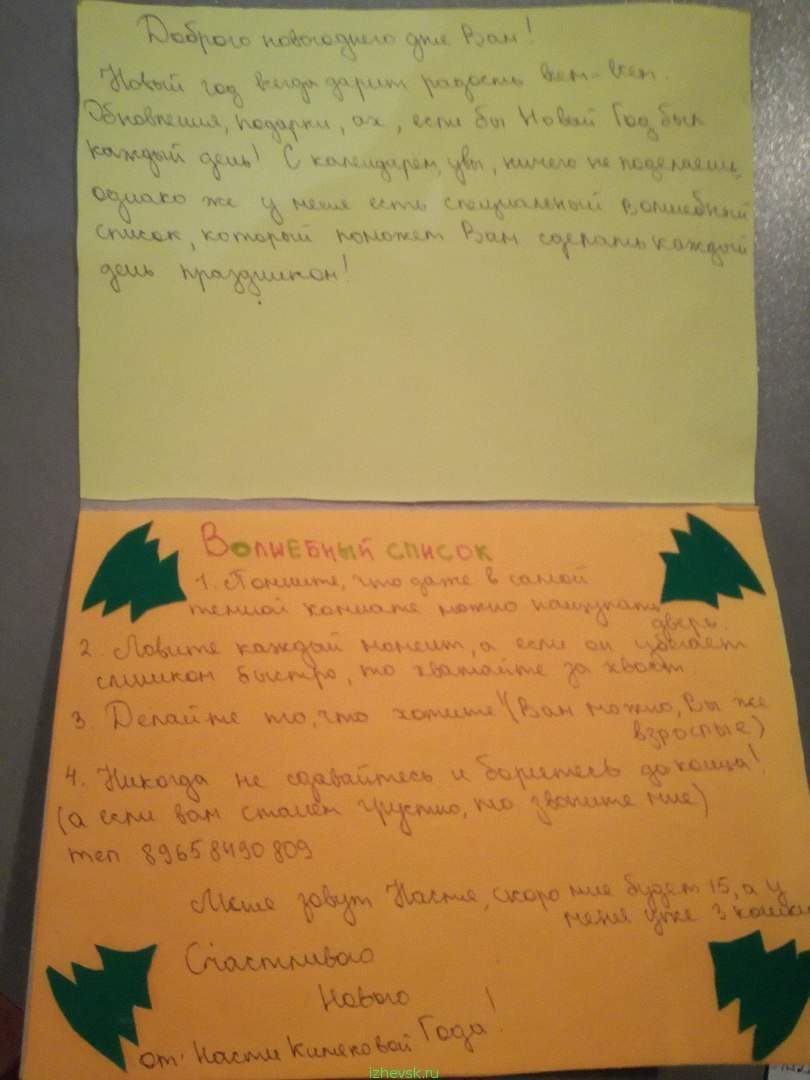 Доброго новогоднего дня Вам!
Новый год всегда дарит радость всем-всем.
Обновления, подарки, ах, если бы Новый Год был
каждый день! С календарем, увы, ничего не поделаешь,
однако же у меня есть специальный волшебный
список, который поможет Вам сделать каждый
день праздником!
Волшебный список
1. Помните, что даже в самой
темной комнате можно нащупать
дверь.
2. Ловите каждый момент, а если он убегает
слишком быстро, то хватайте за хвост.
3. Делайте то, что хотите! (Вам можно, Вы же
взрослые)
4. Никогда не сдавайтесь и боритесь до конца!
(а если вам станет грустно, то звоните мне)
тел 89658490809
Меня зовут Настя, скоро мне будет 15, а у
меня уже 3 кошки
Счастливого
Нового
Года!
от: Насти
izhevsk.ru